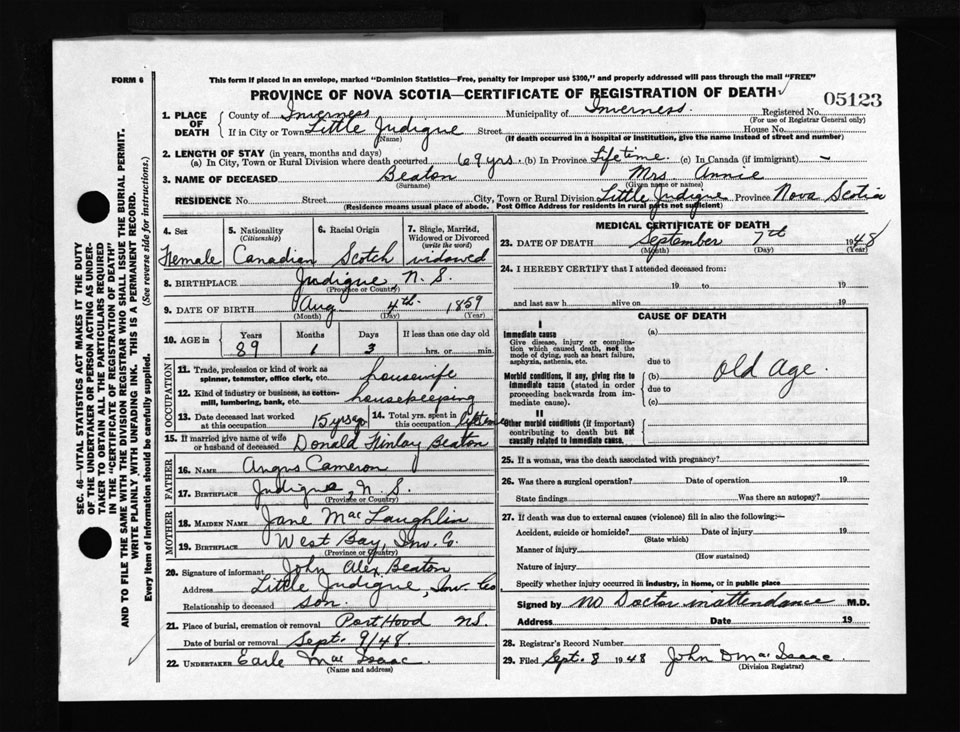 FORM 6
This form if placed in an envelope, marked "Dominion Statistics—Free, penalty for improper use $300," and properly addressed will pass through the mail "FREE"
PROVINCE OF NOVA SCOTIA—CERTIFICATE OF REGISTRATION OF DEATH ✓
05123
1. PLACE OF DEATH
County of Inverness Municipality of Inverness. Registered No.
(For use of Registrar General only)
If in City or Town Little Judique Street House No.
(Name) (If death occurred in a hospital or institution, give the name instead of street and number)
2. LENGTH OF STAY (in years, months and days)
(a) In City, Town or Rural Division where death occurred 69 yrs. (b) In Province Lifetime. (c) In Canada (if immigrant) —
3. NAME OF DECEASED Beaton Mrs. Annie
(Surname) (Given name or names)
RESIDENCE No. Street City, Town or Rural Division Little Judique Province Nova Scotia
(Residence means usual place of abode. Post Office Address for residents in rural parts not sufficient)
4. Sex
Female
5. Nationality
(Citizenship)
Canadian
6. Racial Origin
Scotch
7. Single, Married, Widowed or Divorced
(write the word)
widowed
8. BIRTHPLACE Judique N. S.
(Province or Country)
9. DATE OF BIRTH Aug 4th. 1859
(Month) (Day) (Year)
10. AGE in
Years Months Days If less than one day old
89 1 3 hrs. or min.
OCCUPATION
11. Trade, profession or kind of work as spinner, teamster, office clerk, etc. housewife
12. Kind of industry or business, as cotton-mill, lumbering, bank, etc. housekeeping
13. Date deceased last worked at this occupation 15 yrs ago
14. Total yrs. spent in this occupation lifetime
15. If married give name of wife or husband of deceased Donald Finlay Beaton
FATHER
16. NAME Angus Cameron
17. BIRTHPLACE Judique, N. S.
(Province or Country)
MOTHER
18. MAIDEN NAME Jane MacLaughlin
19. BIRTHPLACE West Bay, Inv. Co.
(Province or Country)
20. Signature of informant John Alex. Beaton
Address Little Judique, Inv. Co
Relationship to deceased son.
21. Place of burial, cremation or removal Port Hood NS.
Date of burial or removal Sept. 9/48
22. UNDERTAKER Earle MacIsaac.
(Name and address)
MEDICAL CERTIFICATE OF DEATH
23. DATE OF DEATH September 7th 1948
(Month) (Day) (Year)
24. I HEREBY CERTIFY that I attended deceased from:
19 to 19
and last saw h alive on 19
CAUSE OF DEATH
I
Immediate cause
Give disease, injury or complication which caused death, not the mode of dying, such as heart failure, asphyxia, asthenia, etc.
(a)
due to
Morbid conditions, if any, giving rise to immediate cause (stated in order proceeding backwards from immediate cause).
(b) Old Age.
due to
(c)
II
Other morbid conditions (if important) contributing to death but not causally related to immediate cause.
25. If a woman, was the death associated with pregnancy?
26. Was there a surgical operation? Date of operation 19
State findings Was there an autopsy?
27. If death was due to external causes (violence) fill in also the following:—
Accident, suicide or homicide? Date of injury 19
(State which)
Manner of injury
(How sustained)
Nature of injury
Specify whether injury occurred in industry, in home, or in public place
Signed by No Doctor in attendance M.D.
Address Date 19
28. Registrar's Record Number
29. Filed Sept. 8 1948 John D MacIsaac.
(Division Registrar)
SEC. 46—VITAL STATISTICS ACT MAKES IT THE DUTY
OF THE UNDERTAKER OR PERSON ACTING AS UNDER-
TAKER TO OBTAIN ALL THE PARTICULARS REQUIRED
IN THE "CERTIFICATE OF REGISTRATION OF DEATH"
AND TO FILE THE SAME WITH THE DIVISION REGISTRAR WHO SHALL ISSUE THE BURIAL PERMIT.
WRITE PLAINLY WITH UNFADING INK. THIS IS A PERMANENT RECORD.
Every item of information should be carefully supplied. (See reverse side for instructions.)